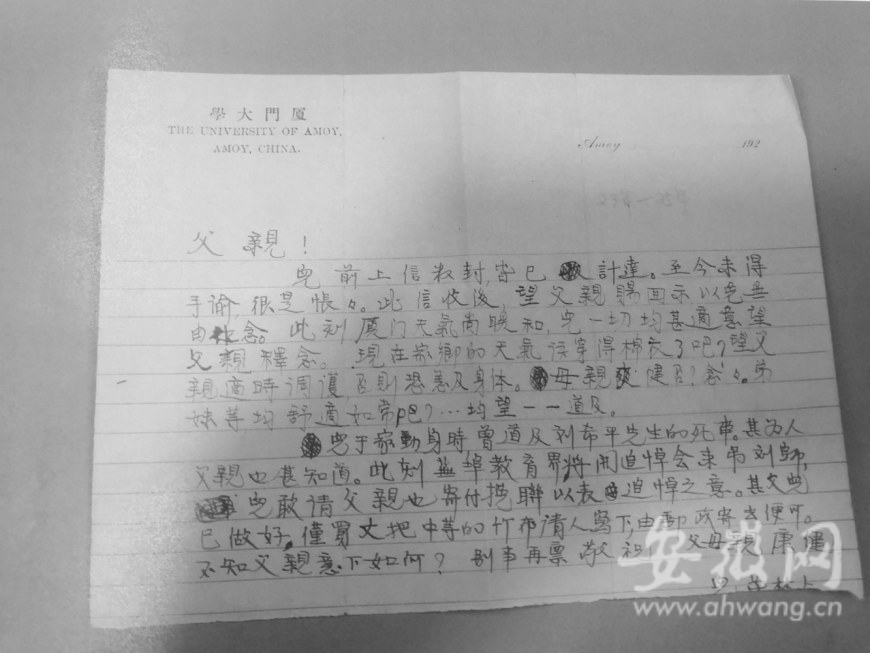 學大門厦
THE UNIVERSITY OF AMOY,
AMOY, CHINA.
Amoy 192
父親！
兒前上信数封，皆已計達。至今未得
手谕，很是悵々。此信收後，望父親賜回示以免
念。此刻厦门天氣尚暖和，兒一切均甚適意望
父親釋念。現在家鄉的天氣该穿得棉衣了吧？望父
親適時调護，否則恐患及身体。母親健否？念々。弟
妹等均舒適如常吧？…均望一一道及。
兒于家動身時曾道及刘希平先生的死事。其为人
父親也甚知道。此刻蕪埠教育界將開追悼会来吊刘師，
兒敢请父親也寄付挽聯以表追悼之意。其文兒
已做好。僅買丈把中等的竹布请人寫下，由郵政寄去便可。
不知父親意下如何？别事再禀 敬祝！父母親康健
上
安徽网
www.ahwang.cn